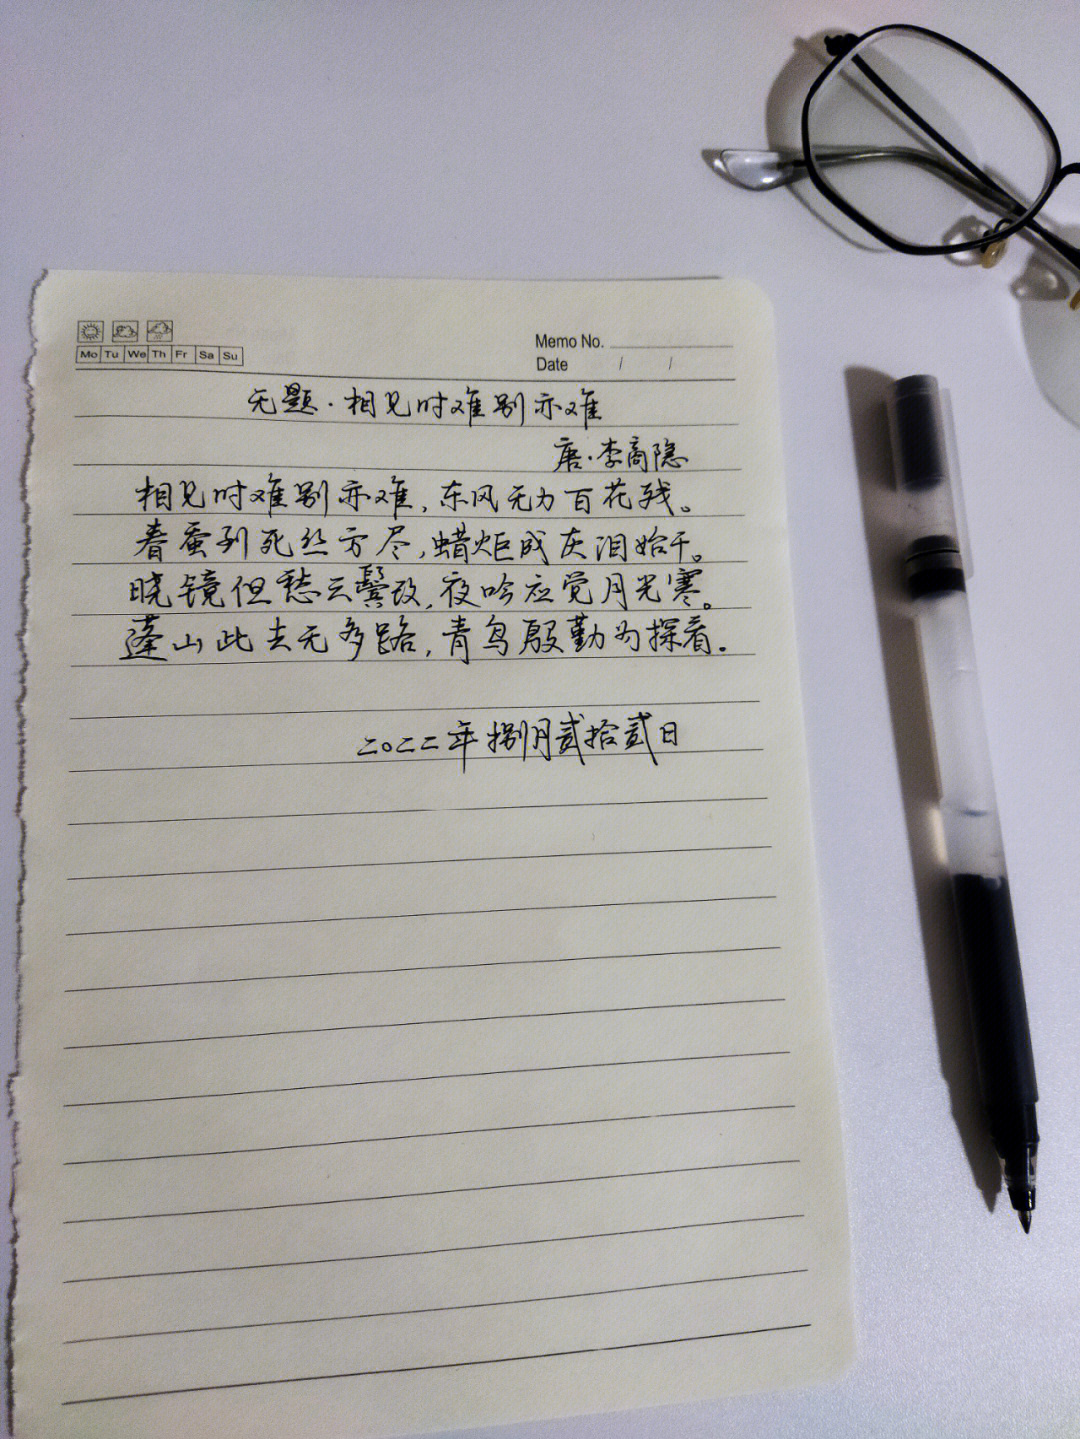 Mo Tu We Th Fr Sa Su
Memo No.
Date / /
无题·相见时难别亦难
唐·李商隐
相见时难别亦难,东风无力百花残。
春蚕到死丝方尽,蜡炬成灰泪始干。
晓镜但愁云鬓改,夜吟应觉月光寒。
蓬山此去无多路,青鸟殷勤为探看。
二〇二二年捌月贰拾贰日